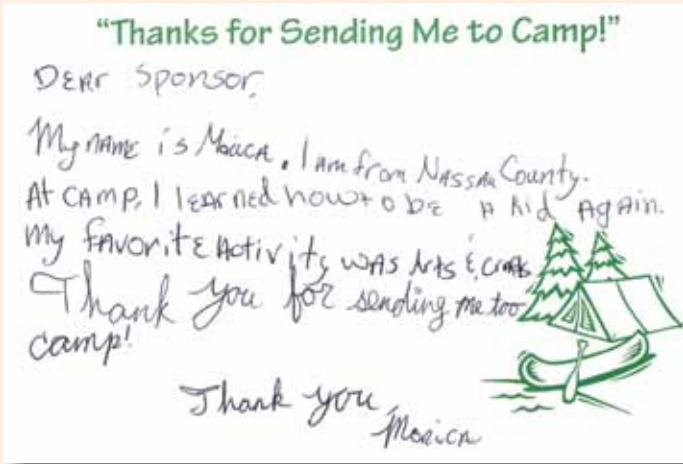 “Thanks for Sending Me to Camp!”
Dear Sponsor,
My name is Monica. I am from Nassau County.
At camp, I learned how to be a kid Again.
my favorite Activity was Arts & crafts
Thank you for sending me too
camp!
Thank you,
Monica